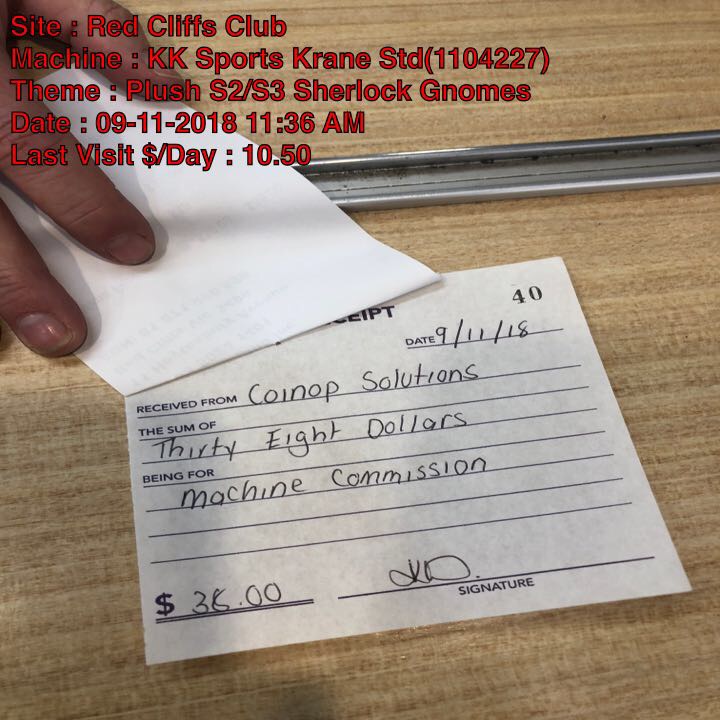 Site : Red Cliffs Club
Machine : KK Sports Krane Std(1104227)
Theme : Plush S2/S3 Sherlock Gnomes
Date : 09-11-2018 11:36 AM
Last Visit $/Day : 10.50
40
CEIPT
DATE 9/11/18
RECEIVED FROM Coinop Solutions
THE SUM OF
Thirty Eight Dollars
BEING FOR
machine Commission
$ 38.00
SIGNATURE